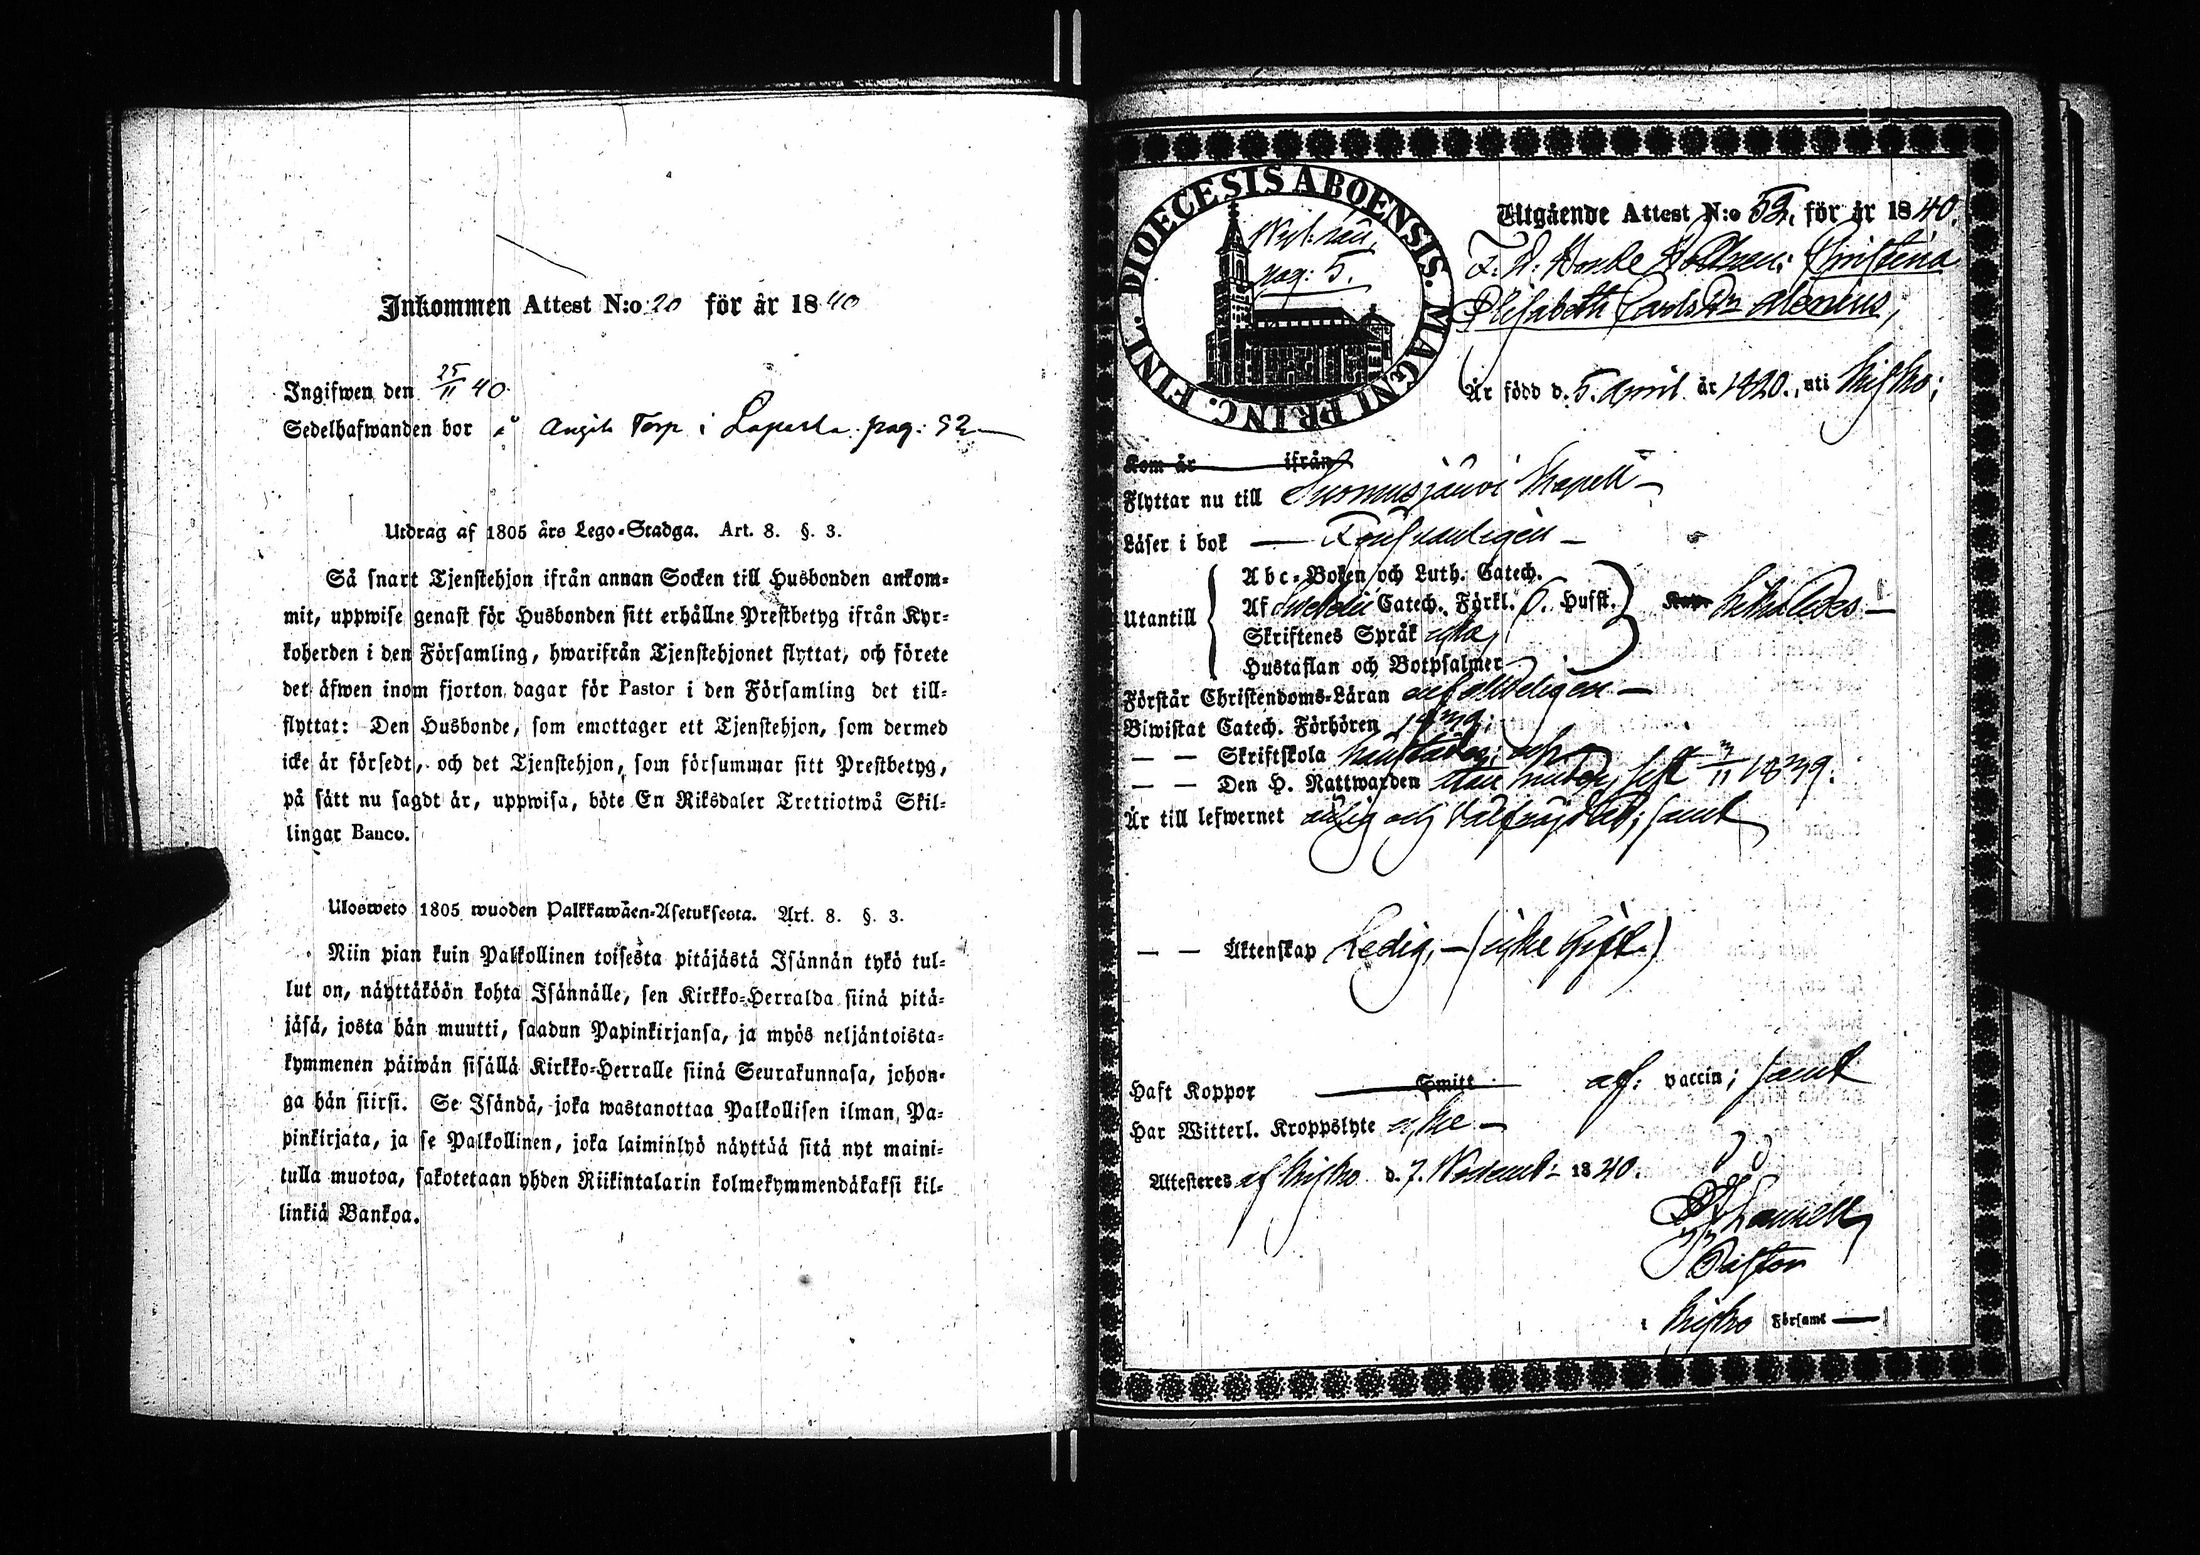 Inkommen Attest N:o 20 för år 1840
Ingifwen den 25/11 40.
Sedelhafwanden bor å Torp i Laperla pag: 52
Utdrag af 1805 års Lego-Stadga. Art. 8. §. 3.
Så snart Tjenstehjon ifrån annan Socken till Husbonden ankom-
mit, uppwise genast för Husbonden sitt erhållne Prestbetyg ifrån Kyr-
koherden i den Församling, hwarifrån Tjenstehjonet flyttat, och förete
det äfwen inom fjorton dagar för Pastor i den Församling det till-
flyttat: Den Husbonde, som emottager ett Tjenstehjon, som dermed
icke är försedt, och det Tjenstehjon, som försummar sitt Prestbetyg,
på sätt nu sagdt är, uppwisa, böte En Riksdaler Trettiotwå Skil-
lingar Banco.
Ulosweto 1805 wuoden Palkkawäen-Asetuksesta. Art. 8. §. 3.
Niin pian kuin Palkollinen toisesta pitäjästä Isännän tykö tul-
lut on, näyttäköön kohta Isännälle, sen Kirkko-Herralda siinä pitä-
jäsä, josta hän muutti, saadun Papinkirjansa, ja myös neljäntoista-
kymmenen päiwän sisällä Kirkko-Herralle siinä Seurakunnasa, johon-
ga hän siirsi. Se Isändä, joka wastanottaa Palkollisen ilman Pa-
pinkirjata, ja se Palkollinen, joka laiminlyö näyttää sitä nyt maini-
tulla muotoa, sakotetaan yhden Riikintalarin kolmekymmendäkaksi kil-
linkiä Bankoa.
DIOECESIS ABOENSIS. MAGNI PRINC. FINL.
pag: 5.
Utgående Attest N:o 52, för år 1840.
Christina
Elisabeth Carls Dr
Är född d. 5. April år 1820., uti Kisko;
Kom år ifrån
Flyttar nu till Suomusjärvi Kapell
Läser i bok
Utantill
Abc-Boken och Luth. Catech.
Af Svebelii Catech. Förkl. O. Hust.
Skriftenes Språk
Hustaflan och Botpsalmer
Förstår Christendoms-Läran
Biwistat Catech. Förhören 1839;
— — Skriftskola
— — Den H. Nattwarden 3/11 1839.
Är till lefwernet ärlig och samt
— — Äktenskap Ledig, — (icke Gift.)
Haft Koppor Smitt af: vaccin; samt
Har Witterl. Kroppslyte icke —
Attesteres af Kisko d. 7. Novemb: 1840.
Pastor
i Kisko Församl